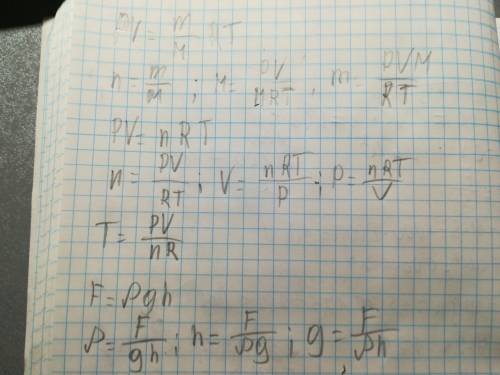 PV = m/M RT
n = m/M ; n = PV/MRT , m = PVM/RT
PV = nRT
n = PV/RT ; V = nRT/P ; P = nRT/V
T = PV/nR
F = ρgh
ρ = F/gh ; h = F/ρg ; g = F/ρh